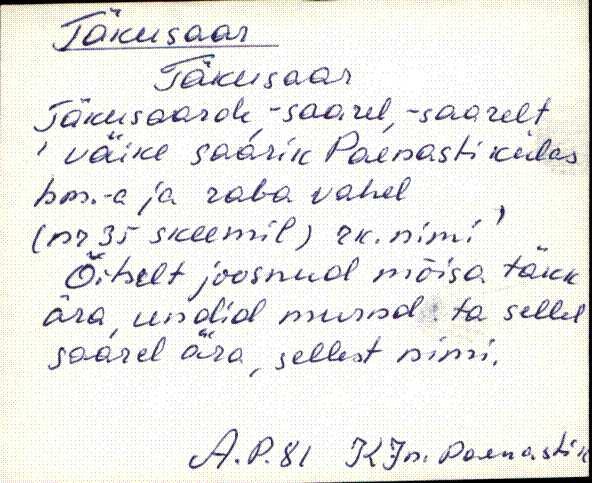 Täkusaar
Täkusaar
Täkusaarde, -saarel, -saarelt
' väike saarik Paenasti külas
hm.-a ja raba vahel
(nr 35 skeemil) rk. nimi '
Õitselt joosnud mõisa täkk
ära, undid murnd ta sellel
saarel ära, sellest nimi.
A.P. 81 KJn. Paenasti k